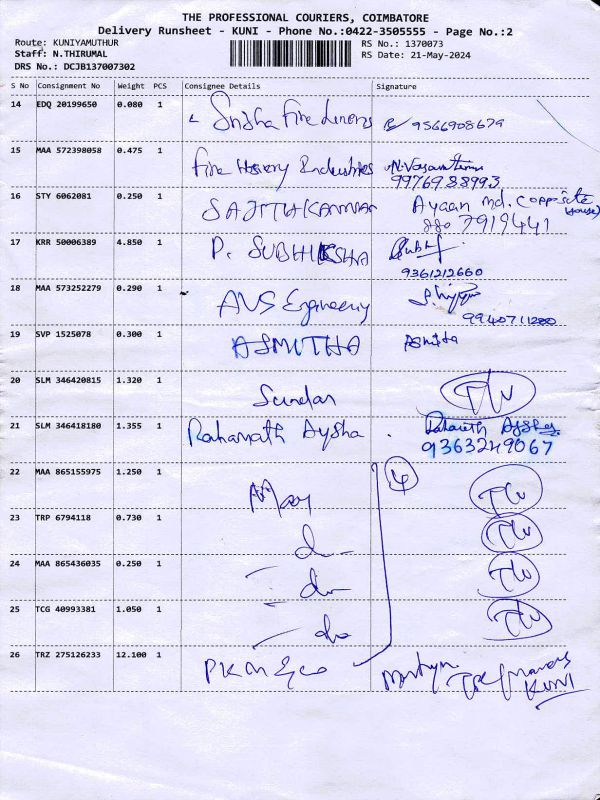 THE PROFESSIONAL COURIERS, COIMBATORE
Delivery Runsheet - KUNI - Phone No.:0422-3505555 - Page No.:2
Route: KUNIYAMUTHUR RS No.: 1370073
Staff: N.THIRUMAL RS Date: 21-May-2024
DRS No.: DCJB137007302
S No Consignment No Weight PCS Consignee Details Signature
14 EDQ 20199650 0.080 1 Fire 9566908679
15 MAA 572398058 0.475 1 Fire Industries N.Vasan
9976988993
16 STY 6062081 0.250 1 SAJITHKANNAN Ayaan md. (opposite
house)
7919441
17 KRR 50006389 4.850 1 P. SUBHIKSHA
9361212660
18 MAA 573252279 0.290 1 AVS Engineering
9940711200
19 SVP 1525078 0.300 1 ASMITHA Asmita
20 SLM 346420815 1.320 1 Sundar
21 SLM 346418180 1.355 1 Raharyath Aysha
9363249067
22 MAA 865155975 1.250 1 4
23 TRP 6794118 0.730 1
24 MAA 865436035 0.250 1
25 TCG 40993381 1.050 1
26 TRZ 275126233 12.100 1 PKM & Co
KUNI